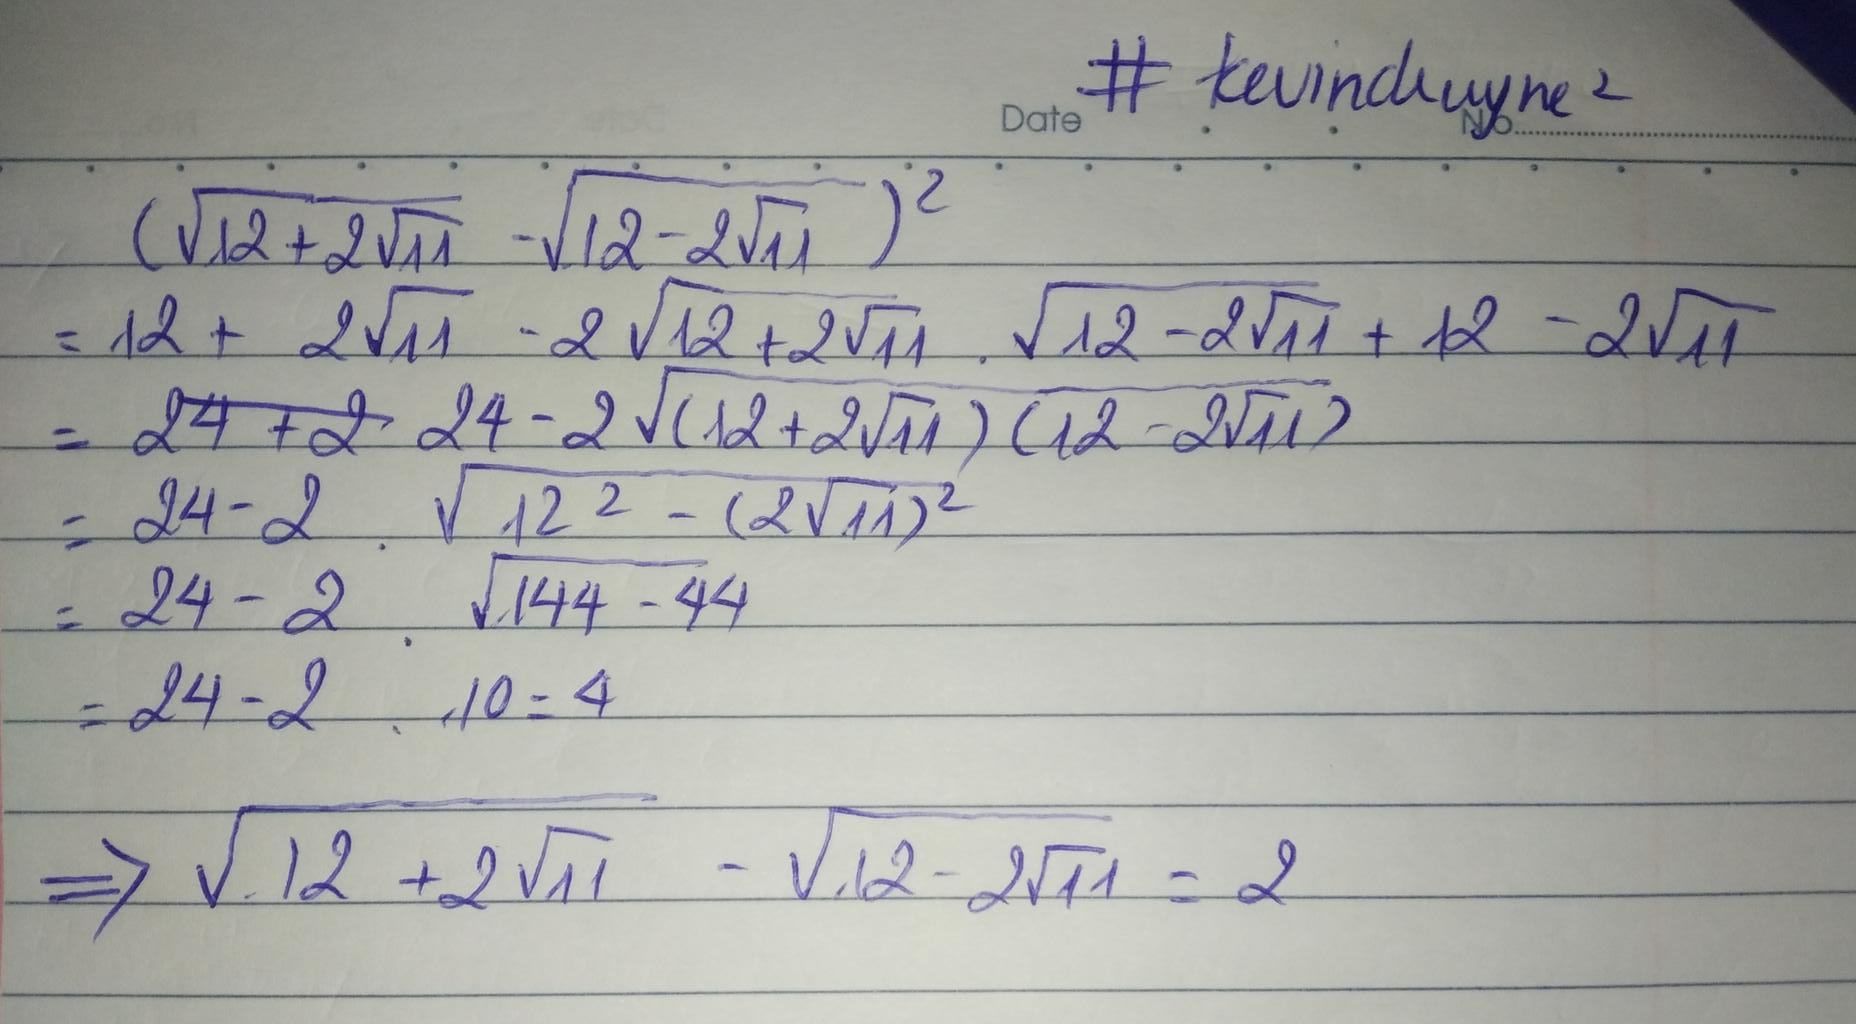 # kevinduyne2
Date No
(√(12+2√11) - √(12-2√11))²
= 12 + 2√11 - 2√(12+2√11) . √(12-2√11) + 12 - 2√11
= 24 + 2 24 - 2√((12+2√11)(12-2√11))
= 24 - 2 . √(12² - (2√11)²)
= 24 - 2 . √(144 - 44)
= 24 - 2 . 10 = 4
⇒ √(12 + 2√11) - √(12 - 2√11) = 2